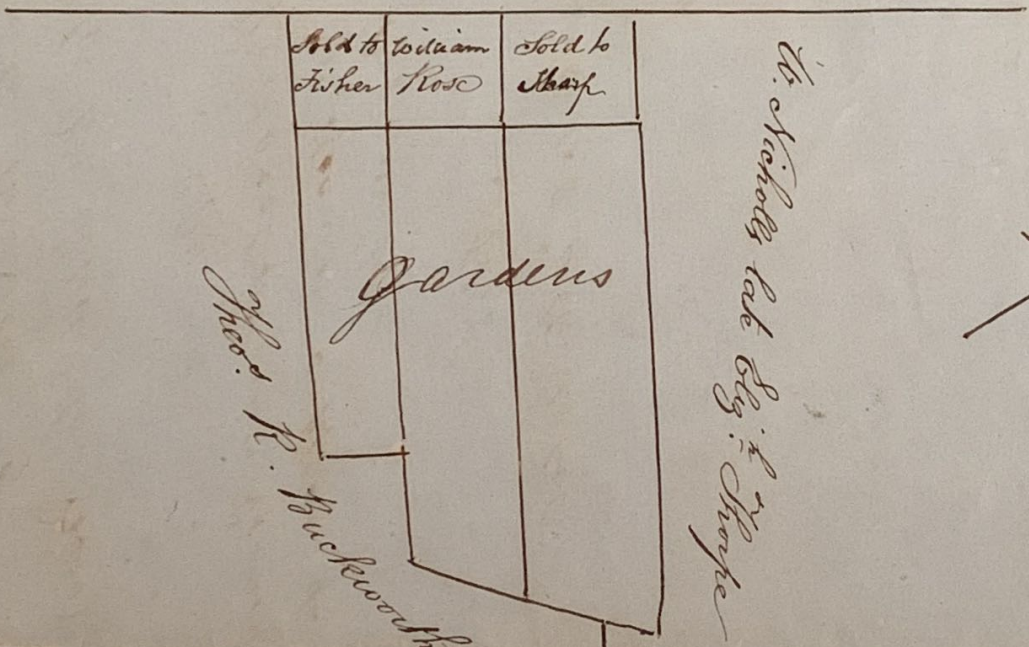 Sold to
Fisher
William
Rose
Sold to
Sharp
Gardens
Theos. R. Buckworth
W. Nicholls late Eliz.th Thorpe